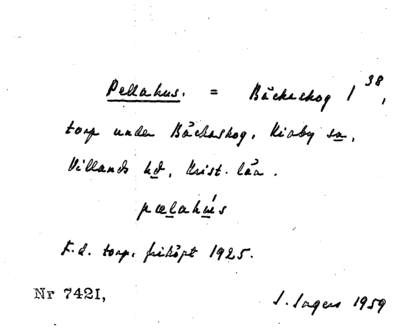 Pellahus. = Bäckaskog 1 38,
torp under Bäckaskog, Kiaby sn,
Villands hd, Krist. län.
pælahus
F.d. torp, friköpt 1925.
Nr 7421, S. Sagers 1959